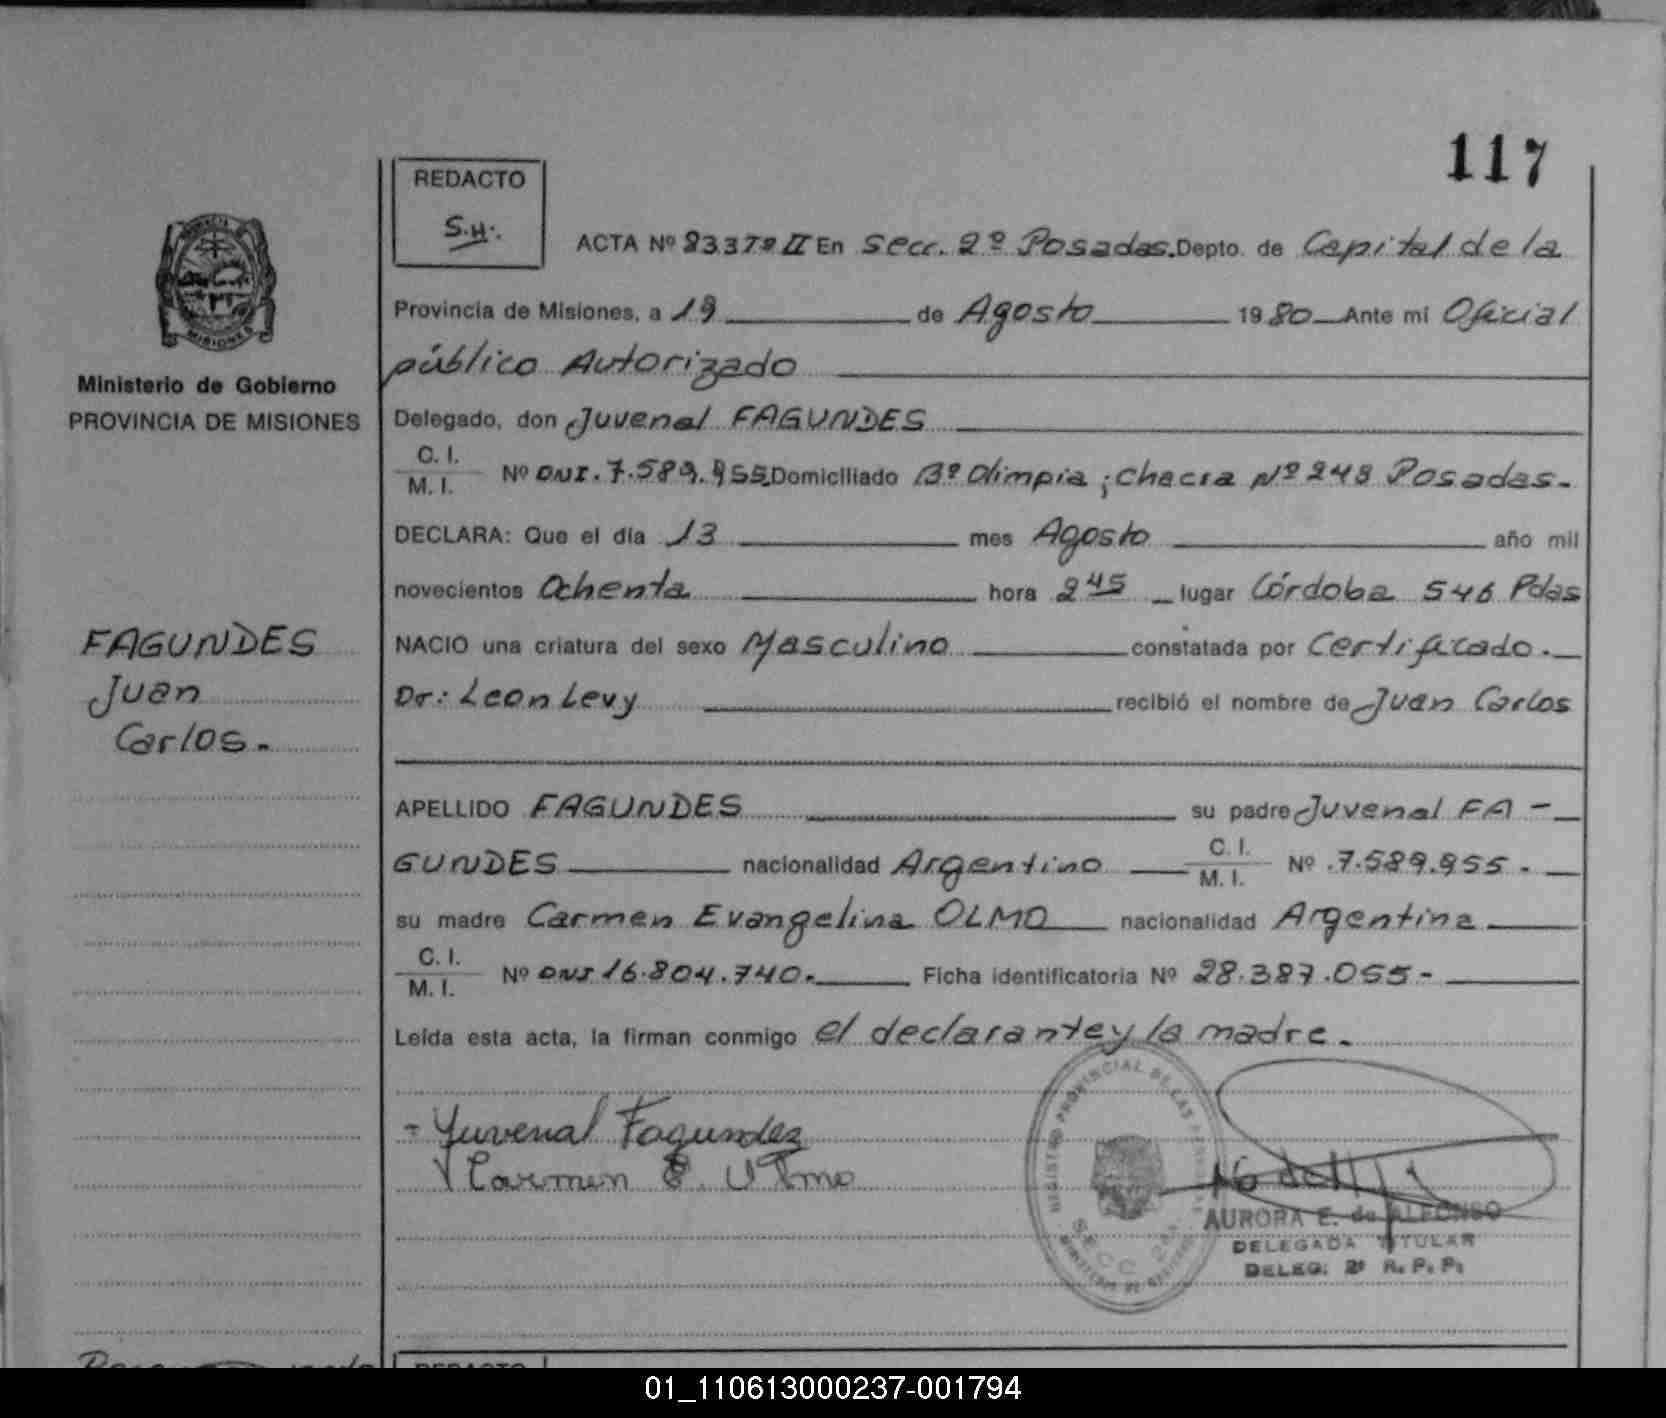 117
REDACTO
S.H.
ACTA Nº 83378 II En Secc. 2º Posadas. Depto. de Capital de la
Provincia de Misiones, a 19 de Agosto 1980 Ante mi Oficial
público Autorizado
Ministerio de Gobierno
PROVINCIA DE MISIONES
Delegado, don Juvenal FAGUNDES
C. I.
M. I. Nº DNI. 7.589.955 Domiciliado Bº Olimpia; Chacra Nº 248 Posadas.
DECLARA: Que el día 13 mes Agosto año mil
novecientos Ochenta hora 2 45 lugar Córdoba 546 Pdas
FAGUNDES
Juan
Carlos.-
NACIO una criatura del sexo Masculino constatada por Certificado.
Dr: Leon Levy recibió el nombre de Juan Carlos
APELLIDO FAGUNDES su padre Juvenal FA-
GUNDES nacionalidad Argentino C. I.
M. I. Nº 7.589.955.
su madre Carmen Evangelina OLMO nacionalidad Argentina
C. I.
M. I. Nº DNI 16.804.740.- Ficha identificatoria Nº 28.387.055-
Leída esta acta, la firman conmigo el declarante y la madre.
- Yuvenal Fagundez
Carmen E. Olmo
REGISTRO PROVINCIAL DE LAS PERSONAS
SECC 2da
AURORA E. de ALFONSO
DELEGADA TITULAR
DELEG. 2ª R. P. P.
REDACTO
01_110613000237-001794